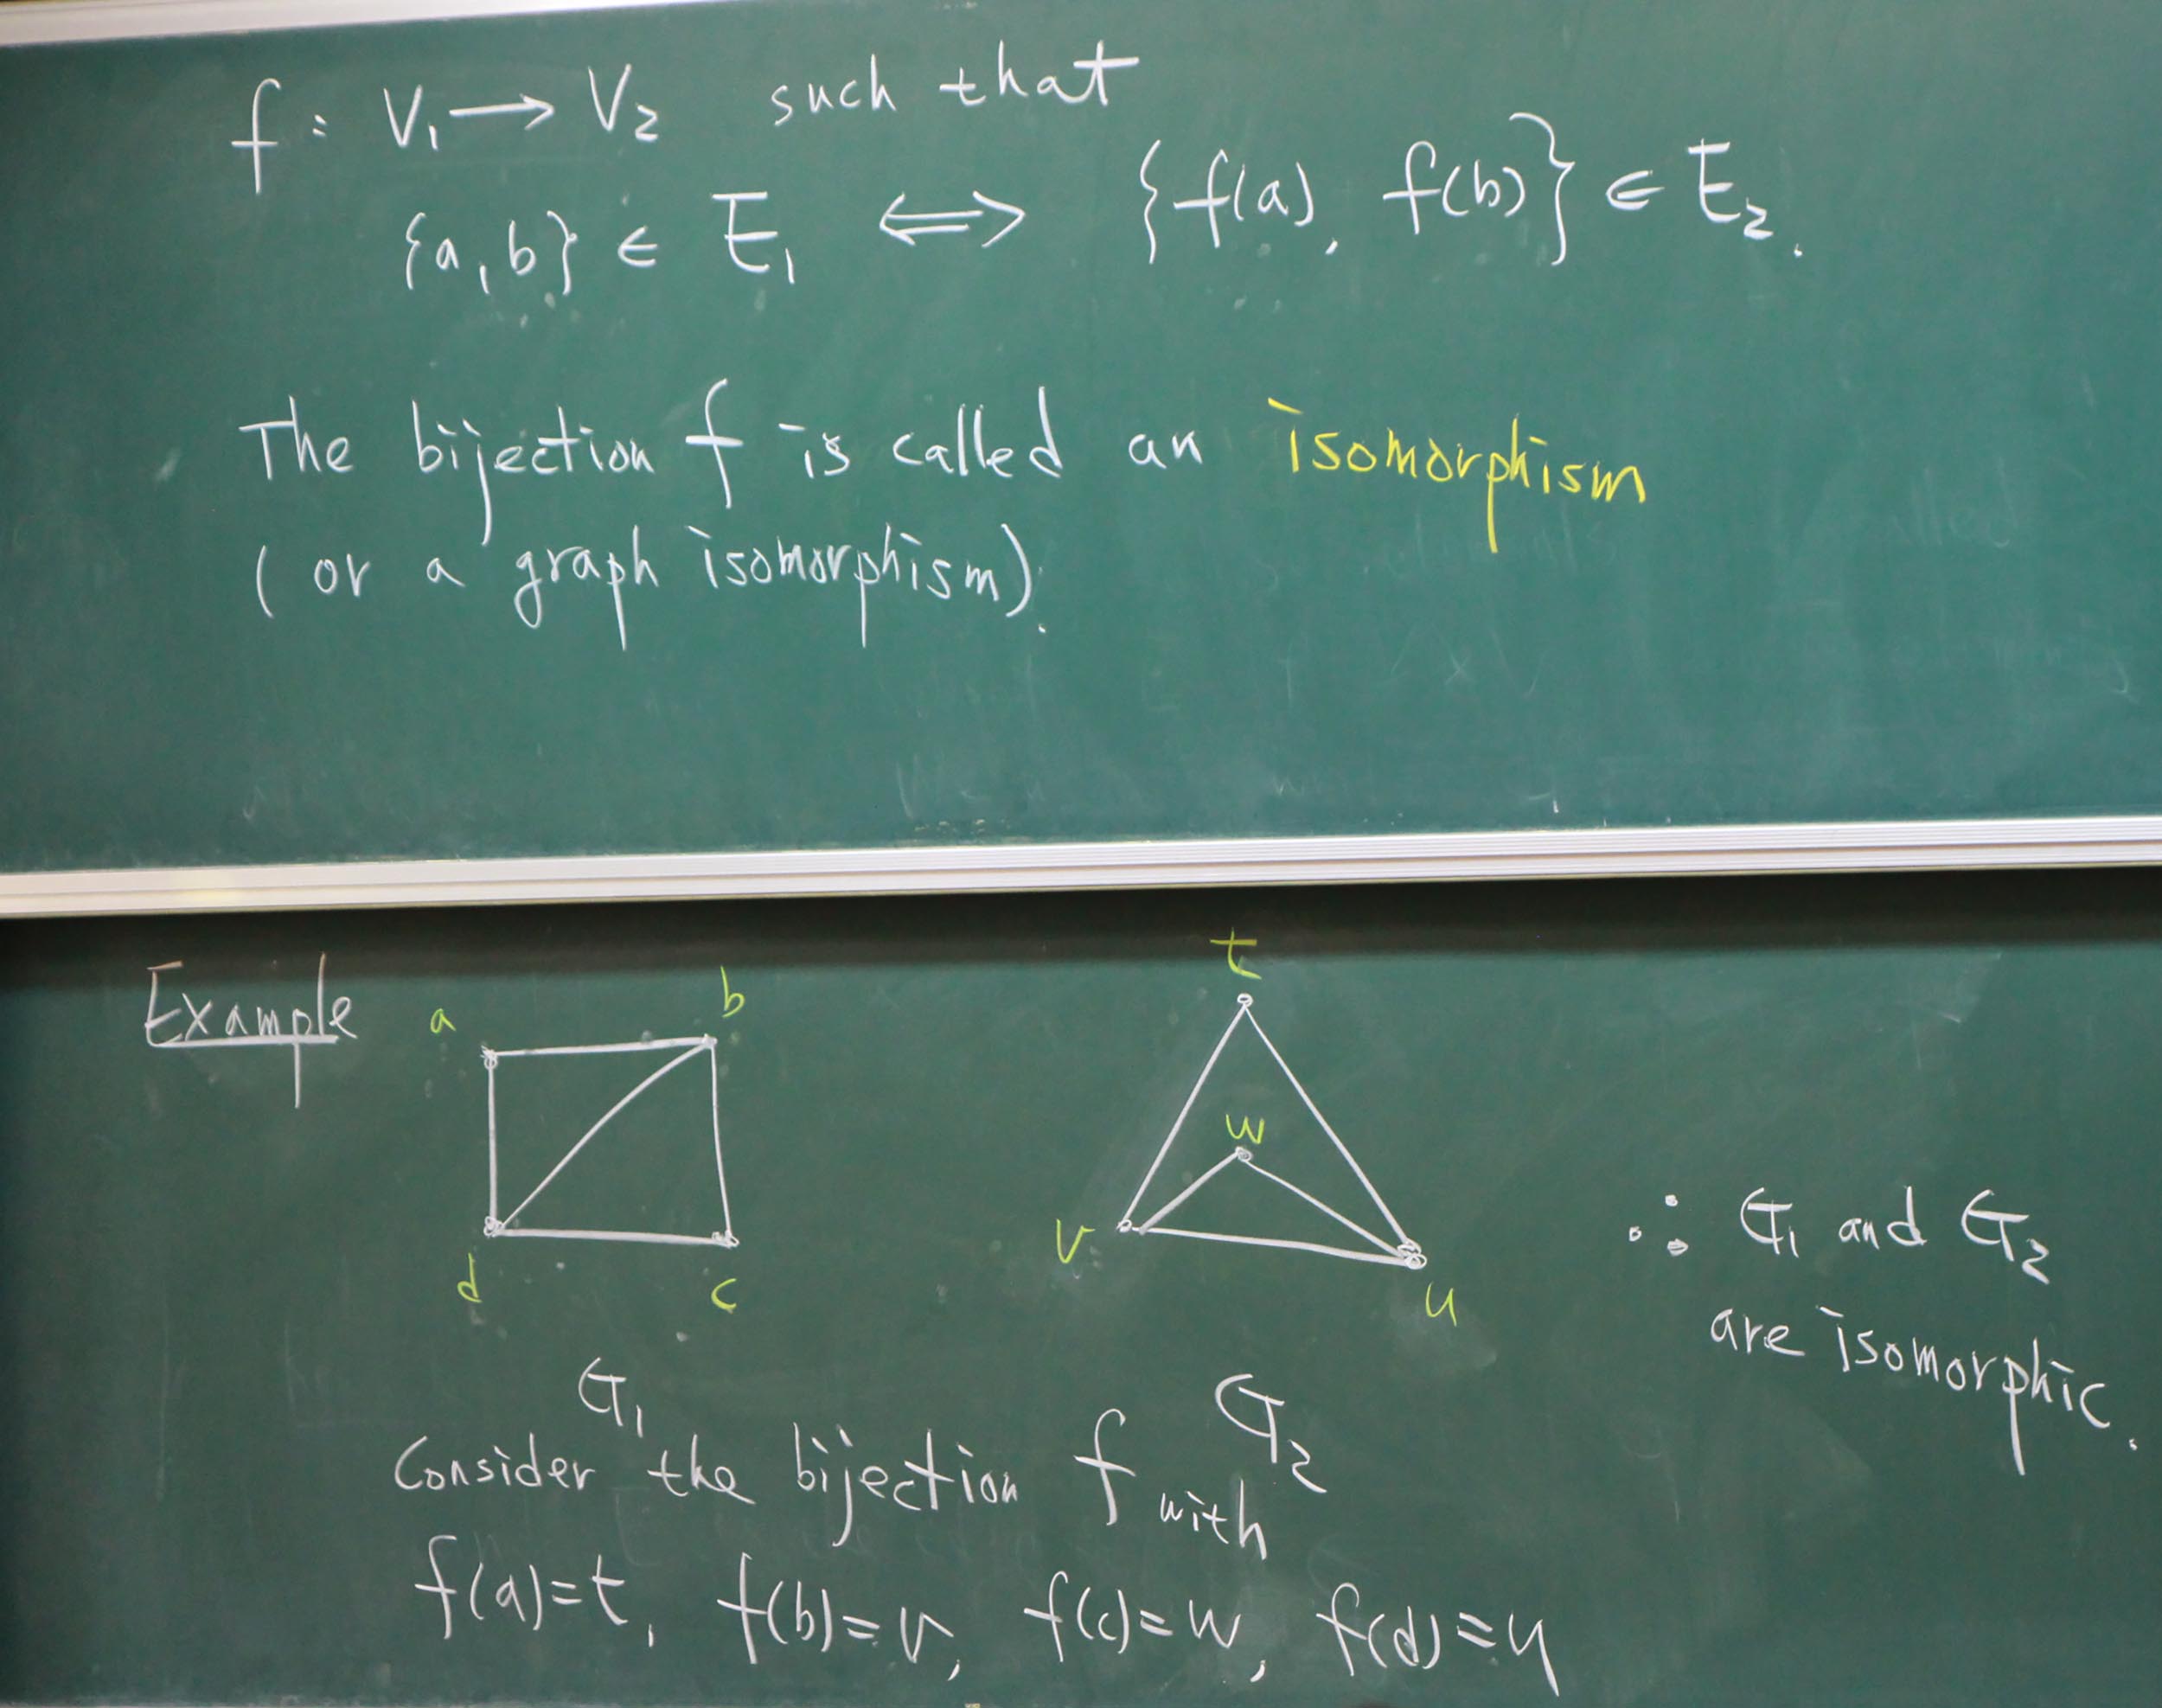 f : V₁ → V₂ such that
{a, b} ∈ E₁ ⟺ {f(a), f(b)} ∈ E₂.
The bijection f is called an isomorphism
(or a graph isomorphism).
Example
a b
d c
G₁
t
w
v u
G₂
∴ G₁ and G₂
are isomorphic.
Consider the bijection f with
f(a)=t, f(b)=v, f(c)=w, f(d)=u